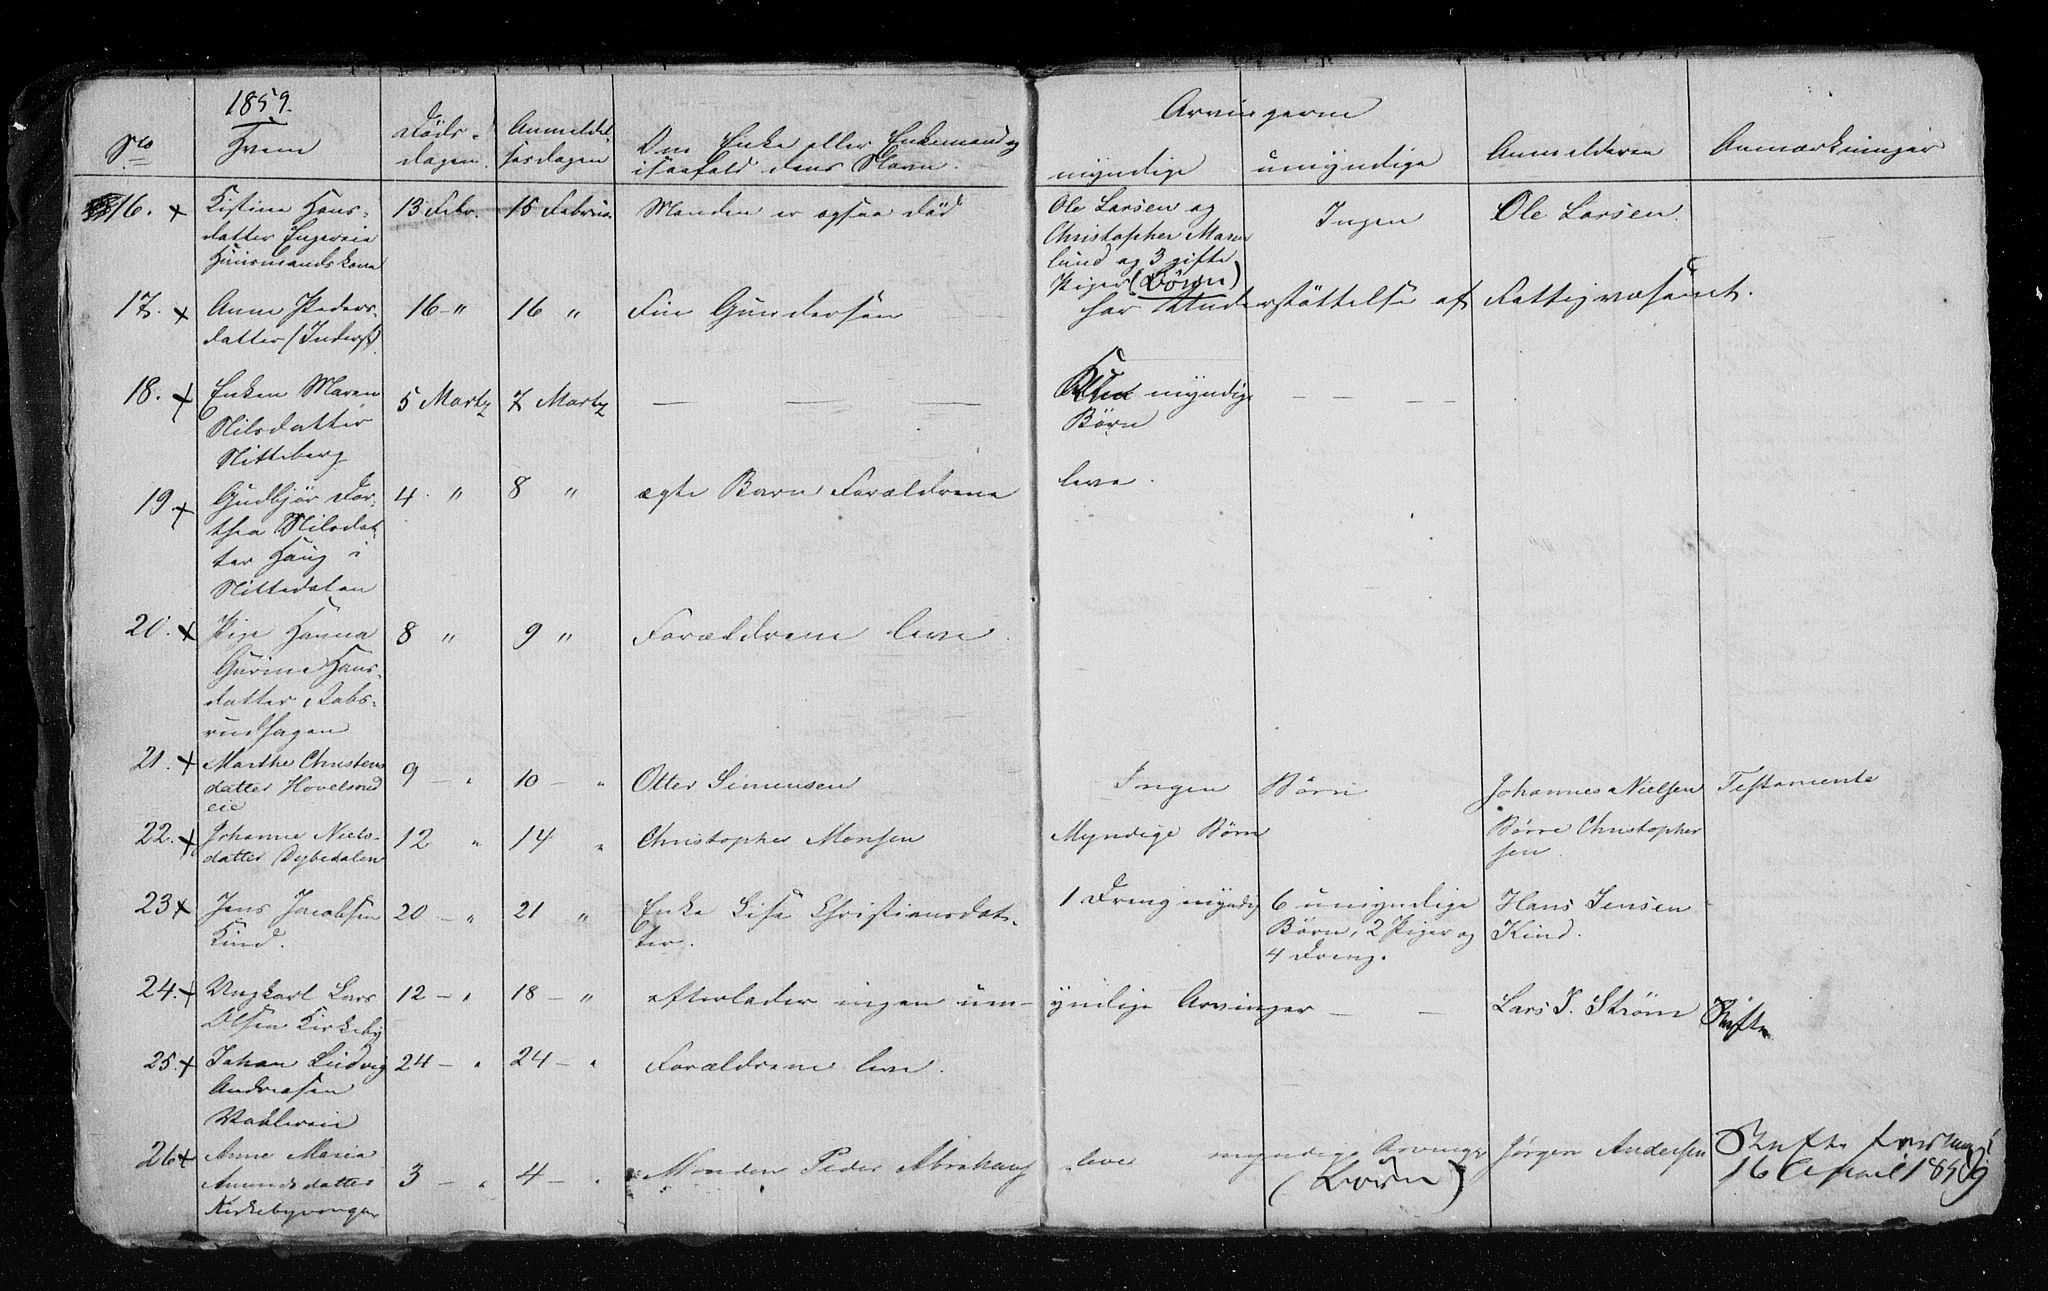 1859.
No
Hvem
Døds-
dagen.
Anmeldel
sesdagen
Om Enke eller Enkemand og
isaafald dens Navn.
Arvingerne
myndige
umyndige
Anmelderen
Anmærkninger
16. x
Kistine Hans-
datter Engereie
Huusmandskone
13 Febr.
15 Februar
Manden er ogsaa død
Ole Larsen og
Christopher Maren
lund og 3 gifte
Piger (Børn)
Ingen
Ole Larsen.
17. x
Anne Peders-
datter (Inderst)
16 - "
16 "
Fin Gundersen
har Understøttelse af Fattigvæsenet.
18. x
Enken Maren
Nilsdatter
Nitteberg
5 Marts
7 Marts
— — —
Kun myndige
Børn
— — — —
19 x
Gudbjør Dor-
thea Nilsdat-
ter Haug i
Nittedalen
4. "
8 "
ægte Barn Forældrene
leve.
20. x
Pige Hanna
Gurine Hans-
datter
8 "
9 "
Forældrene leve.
21. x
Marthe Christens
datter Hovelsrud
eie
9 — "
10 — "
Otter Simensen
Ingen Børn
Johannes Nielsen
Testamente
22. x
Johanne Niels-
datter Dybedalen
12 "
14 "
Christopher Monsen
Myndige Børn
Børre Christopher
sen
23 x
Jens Jacobsen
Kind.
20 — "
21 "
Enke Lise Christiansdat-
ter.
1 Dreng myndig
6 umyndige
Børn, 2 Piger og
4 Dreng.
Hans Jensen
Kind.
24. x
Ungkarl Lars
Olsen Kirkeby
12 — "
18 — "
efterlader ingen um-
yndige Arvinger — —
Lars J. Strøm
Skifte
25 x
Johan Ludvig
Andreasen
24 — "
24 — "
Forældrene leve.
26 x
Anne Maria
Amundsdatter
Kirkebyvangen
3 — "
4 — "
Manden Peder Abrahams
lever
myndige Arvinge
(Børn)
Jørgen Andersen
Skifte
16 April 1859